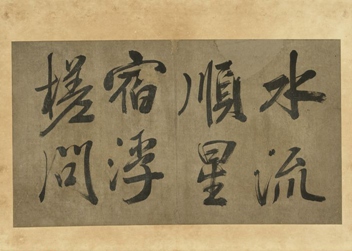 水流
順星
宿浮
槎問